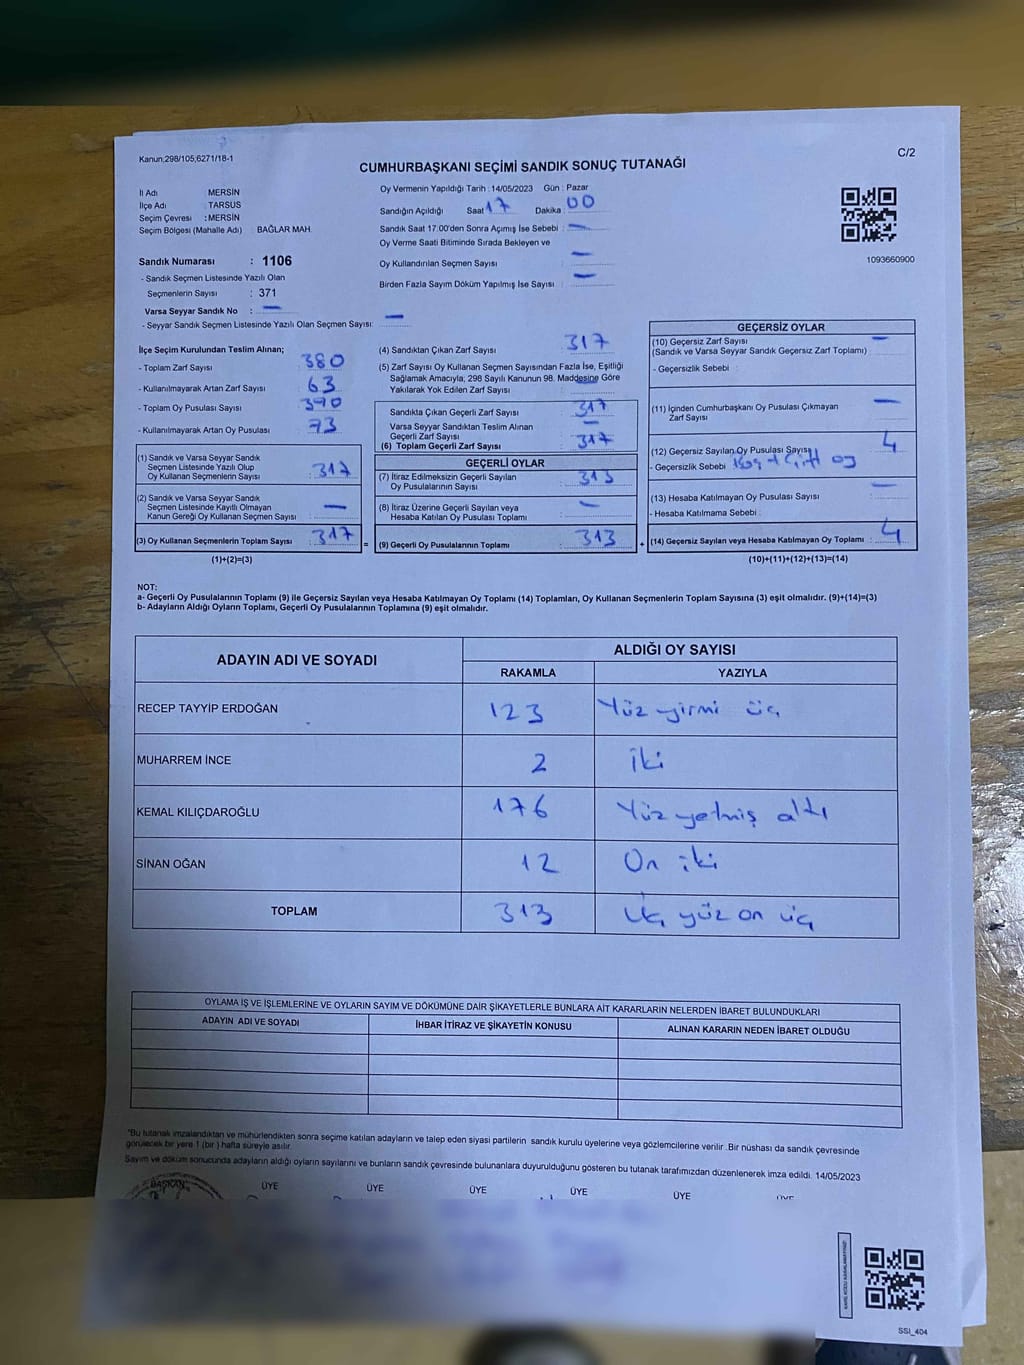 Kanun,298/105,6271/18-1
C/2
CUMHURBAŞKANI SEÇİMİ SANDIK SONUÇ TUTANAĞI
İl Adı : MERSİN
İlçe Adı : TARSUS
Seçim Çevresi : MERSİN
Seçim Bölgesi (Mahalle Adı) BAĞLAR MAH.
Sandık Numarası : 1106
- Sandık Seçmen Listesinde Yazılı Olan
Seçmenlerin Sayısı : 371
Varsa Seyyar Sandık No : —
- Seyyar Sandık Seçmen Listesinde Yazılı Olan Seçmen Sayısı: —
Oy Vermenin Yapıldığı Tarih : 14/05/2023 Gün : Pazar
Sandığın Açıldığı Saat 17 Dakika : 00
Sandık Saat 17.00'den Sonra Açımış İse Sebebi : —
Oy Verme Saati Bitiminde Sırada Bekleyen ve
Oy Kullandırılan Seçmen Sayısı —
Birden Fazla Sayım Döküm Yapılmış İse Sayısı : —
1093660900
İlçe Seçim Kurulundan Teslim Alınan;
- Toplam Zarf Sayısı : 380
- Kullanılmayarak Artan Zarf Sayısı : 63
- Toplam Oy Pusulası Sayısı : 390
- Kullanılmayarak Artan Oy Pusulası : 73
(1) Sandık ve Varsa Seyyar Sandık
Seçmen Listesinde Yazılı Olup
Oy Kullanan Seçmenlerin Sayısı : 317
(2) Sandık ve Varsa Seyyar Sandık
Seçmen Listesinde Kayıtlı Olmayan
Kanun Gereği Oy Kullanan Seçmen Sayısı : —
(3) Oy Kullanan Seçmenlerin Toplam Sayısı : 317
(1)+(2)=(3)
(4) Sandıktan Çıkan Zarf Sayısı : 317
(5) Zarf Sayısı Oy Kullanan Seçmen Sayısından Fazla İse, Eşitliği
Sağlamak Amacıyla, 298 Sayılı Kanunun 98. Maddesine Göre
Yakılarak Yok Edilen Zarf Sayısı : —
Sandıkta Çıkan Geçerli Zarf Sayısı : 317
Varsa Seyyar Sandıktan Teslim Alınan
Geçerli Zarf Sayısı : —
(6) Toplam Geçerli Zarf Sayısı : 317
GEÇERLİ OYLAR
(7) İtiraz Edilmeksizin Geçerli Sayılan
Oy Pusulalarının Sayısı : 313
(8) İtiraz Üzerine Geçerli Sayılan veya
Hesaba Katılan Oy Pusulası Toplamı : —
= (9) Geçerli Oy Pusulalarının Toplamı : 313 +
GEÇERSİZ OYLAR
(10) Geçersiz Zarf Sayısı : —
(Sandık ve Varsa Seyyar Sandık Geçersiz Zarf Toplamı)
- Geçersizlik Sebebi :
(11) İçinden Cumhurbaşkanı Oy Pusulası Çıkmayan
Zarf Sayısı : —
(12) Geçersiz Sayılan Oy Pusulası Sayısı : 4
- Geçersizlik Sebebi
(13) Hesaba Katılmayan Oy Pusulası Sayısı : —
- Hesaba Katılmama Sebebi :
(14) Geçersiz Sayılan veya Hesaba Katılmayan Oy Toplamı : 4
(10)+(11)+(12)+(13)=(14)
NOT:
a- Geçerli Oy Pusulalarının Toplamı (9) ile Geçersiz Sayılan veya Hesaba Katılmayan Oy Toplamı (14) Toplamları, Oy Kullanan Seçmenlerin Toplam Sayısına (3) eşit olmalıdır. (9)+(14)=(3)
b- Adayların Aldığı Oyların Toplamı, Geçerli Oy Pusulalarının Toplamına (9) eşit olmalıdır.
ADAYIN ADI VE SOYADI
ALDIĞI OY SAYISI
RAKAMLA YAZIYLA
RECEP TAYYİP ERDOĞAN 123 Yüz yirmi üç
MUHARREM İNCE 2 İki
KEMAL KILIÇDAROĞLU 176 Yüz yetmiş altı
SİNAN OĞAN 12 On iki
TOPLAM 313 Üç yüz on üç
OYLAMA İŞ VE İŞLEMLERİNE VE OYLARIN SAYIM VE DÖKÜMÜNE DAİR ŞİKAYETLERLE BUNLARA AİT KARARLARIN NELERDEN İBARET BULUNDUKLARI
ADAYIN ADI VE SOYADI İHBAR İTİRAZ VE ŞİKAYETİN KONUSU ALINAN KARARIN NEDEN İBARET OLDUĞU
*Bu tutanak imzalandıktan ve mühürlendikten sonra seçime katılan adayların ve talep eden siyasi partilerin sandık kurulu üyelerine veya gözlemcilerine verilir .Bir nüshası da sandık çevresinde
görülecek bir yere 1 (bir ) hafta süreyle asılır.
Sayım ve döküm sonucunda adayların aldığı oyların sayılarını ve bunların sandık çevresinde bulunanlara duyurulduğunu gösteren bu tutanak tarafımızdan düzenlenerek imza edildi. 14/05/2023
BAŞKAN ÜYE ÜYE ÜYE ÜYE ÜYE ÜYE
SSİ_404